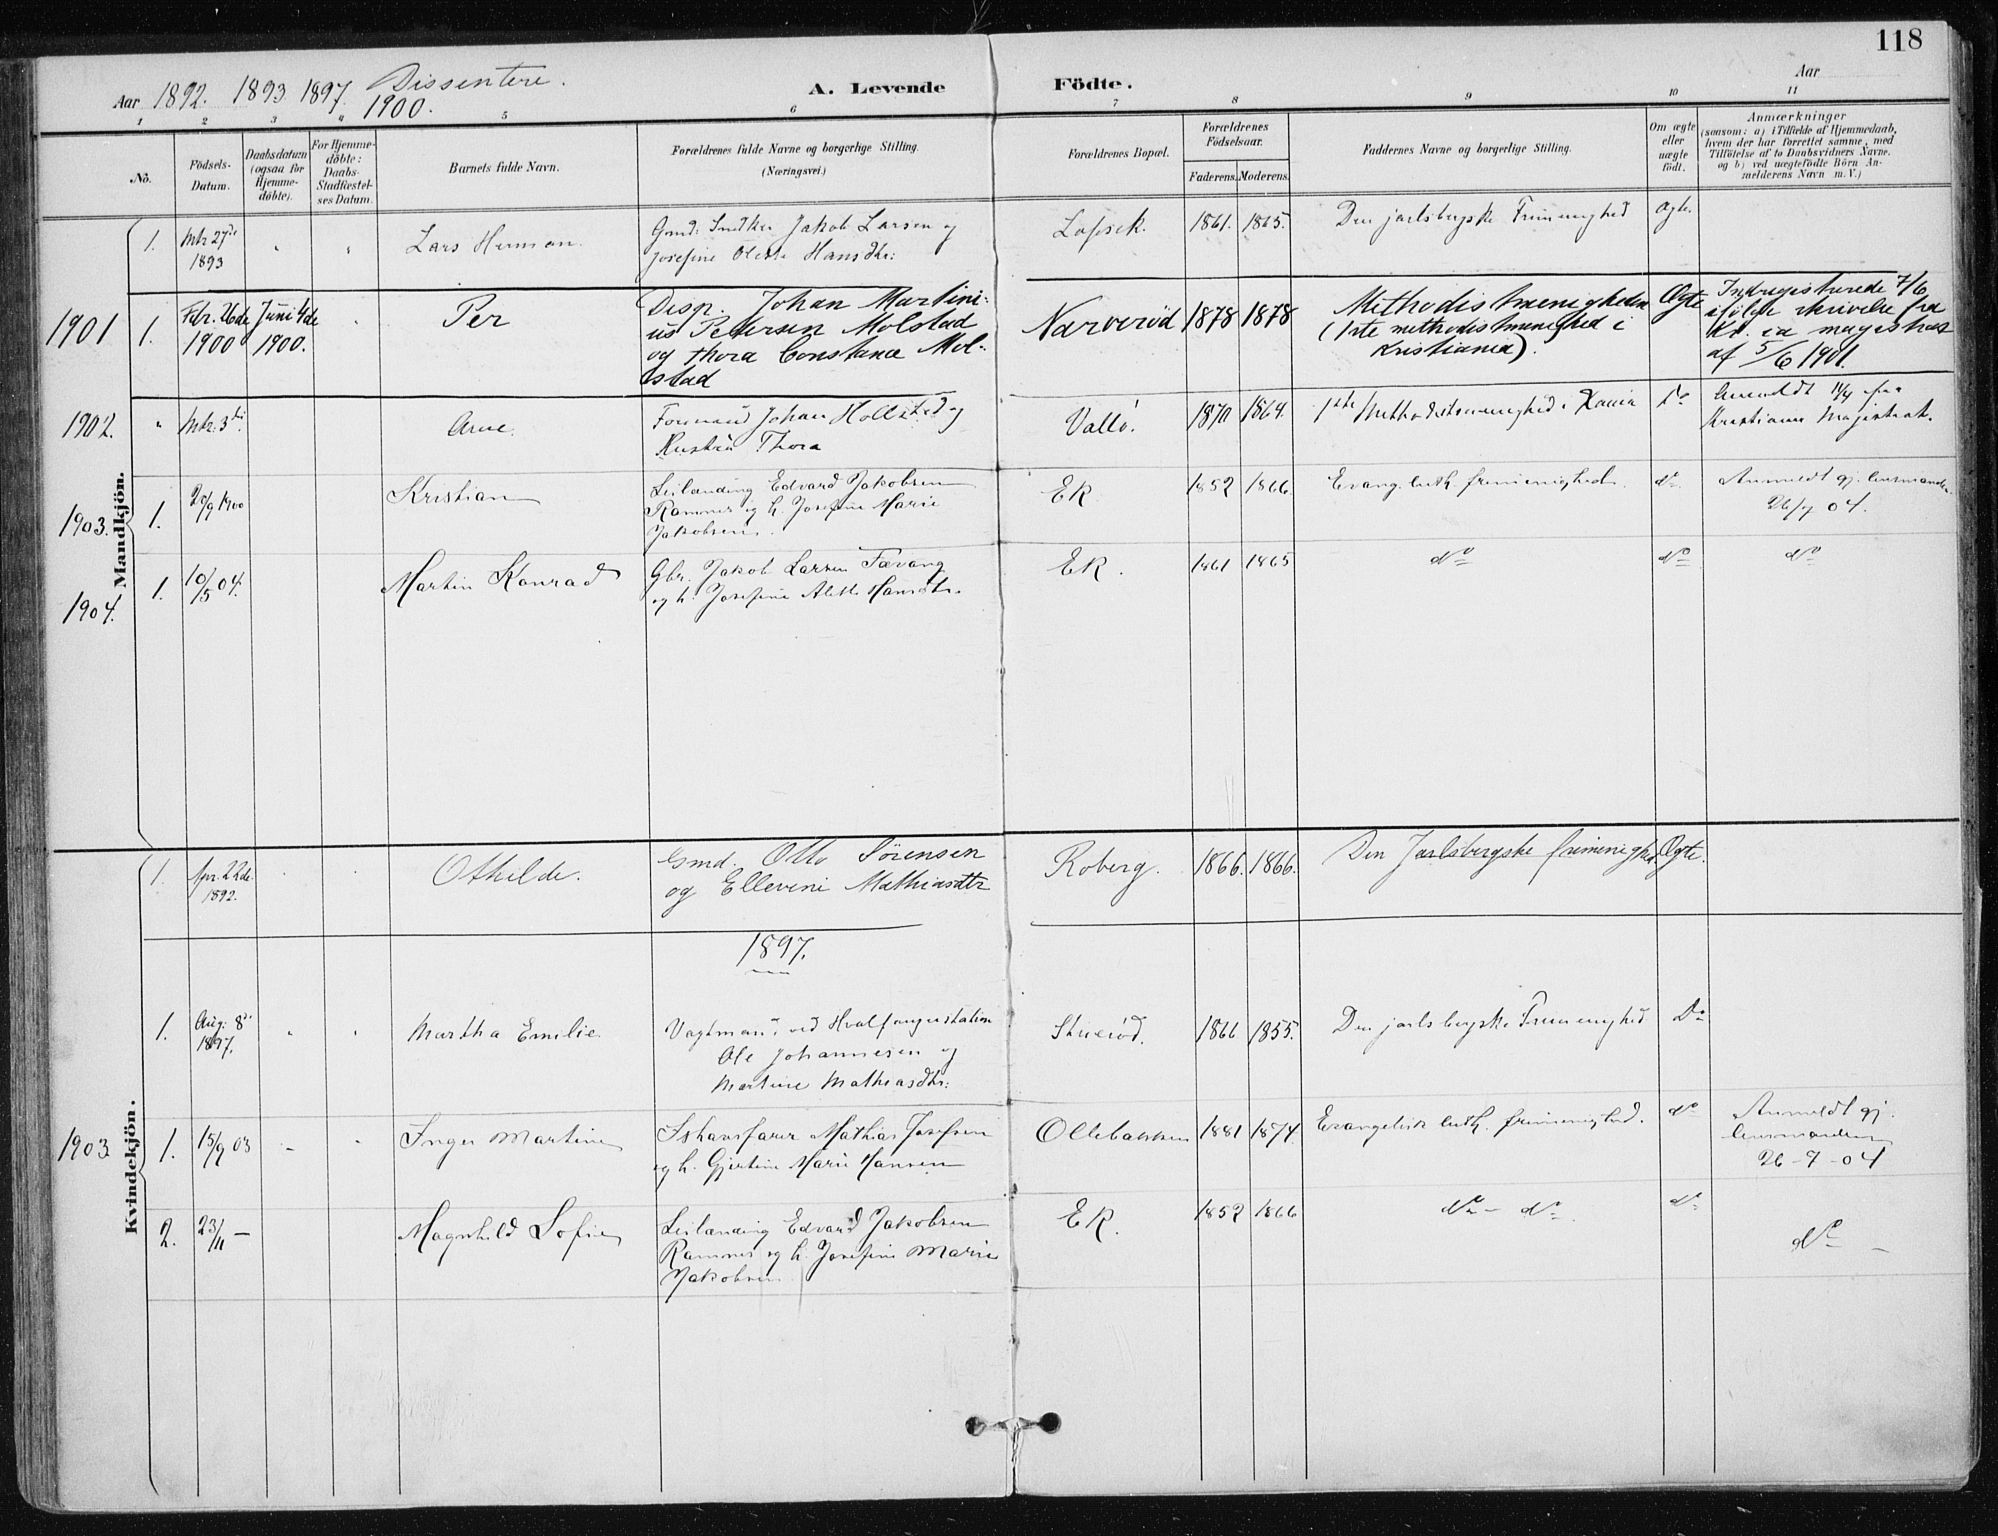 118
Aar 1892. 1893 1897. Dissentere.
1900.
A. Levende Födte.
Aar
1 2 3 4 5 6 7 8 9 10 11
No.
Födsels-
Datum.
Daabsdatum
(ogsaa for
Hjemme-
döbte).
For Hjemme-
döbte:
Daabs-
Stadfæstel-
ses Datum.
Barnets fulde Navn.
Forældrenes fulde Navne og borgerlige Stilling.
(Næringsvei.)
Forældrenes Bopæl.
Forældrenes
Födselsaar.
Faderens. Moderens.
Faddernes Navne og borgerlige Stilling.
Om ægte
eller
uægte
födt.
Anmærkninger
(saasom: a) i Tilfælde af Hjemmedaab,
hvem der har forrettet samme, med
Tilföielse af to Daabsvidners Navne.
og b) ved uægtefödte Börn An-
melderens Navn m. V.)
Mandkjön.
1. 27de
1893
Lars Herman.
Jakob Larsen og
Josefine Hansdtr:
1861. 1865.
Den jarlsbergske Frimenighed
Ægte.
1901 1.
Febr. 26de
1900
Juni 4de
1900.
Per
Disp. Johan Martini-
us Petersen Molstad
og Thora Constance Mol-
stad
Narverød 1878 1878
Methodistmenigheden
(1ste methodistmenighed i
Kristiania).
Ægte
Indregistrerede 7/6
ifølge skrivelse fra
Kr.ia magistrat
af 5/6 1901.
1902. " 3di
Arne.
Formand Johan Hollsted og
Hustru Thora
Vallö. 1870 1864.
1ste Methodistmenighed i
Do
Anmeldt fra
Kristiania Magistrat.
1903. 1. 20/9 1900
Kristian
Leilænding Edvard Jakobsen
Ramnes og h. Josefine Marie
Jakobsen.
Ek. 1852 1866.
Evang. luth. frimenighed.
do
Anmeldt gj. lensmanden
04.
1904. 1. 10/5 04.
Martin Konrad
Gbr. Jakob Larsen Tævang
og h. Josefine Hansdtr.
Ek. 1861 1865
do do do
Kvindekjön.
1. Apr. 22de
1892.
Othilde.
Gmd. Otto Sörensen
og Ellevine Mathiasdtr
Roberg. 1866. 1866.
Den Jarlsbergske frimenighed
Ægte.
1897.
1. Aug: 8de
1897.
Martha Emilie.
Vagtmand ved Hvalfangerstation
Ole Johannesen og
Martine Mathiasdtr:
1866 1855.
Den jarlsbergske Frimenighed
Do
1903 1. 15/9 03
Inger Martine
Ishavsfarer Mathias Josefsen
og h. Gjertine Marie Hansen
Ollebakken 1881 1874.
Evangelisk luth. frimenighed.
do
Anmeldt gj.
lensmanden
04
2. 23/11 —
Magnhild Sofie
Leilænding Edvard Jakobsen
Ramnes og h. Josefine Marie
Jakobsen
Ek. 1852 1866
do - do.
do
do —